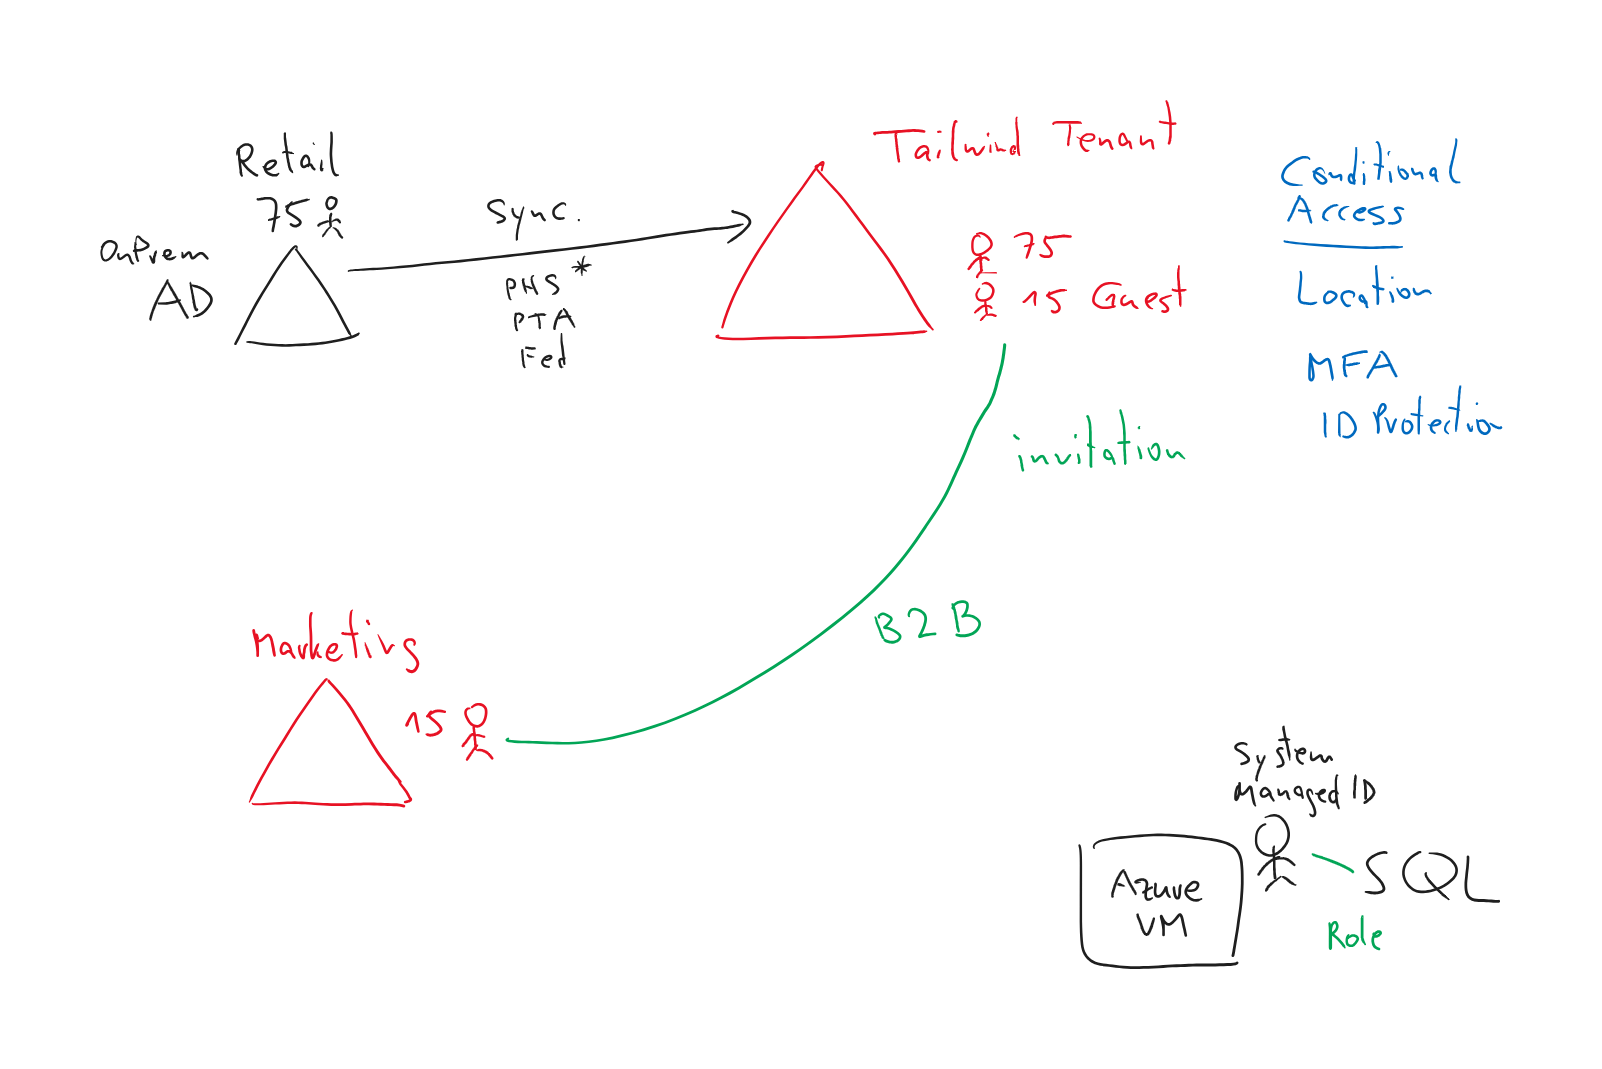 Retail
75
OnPrem
AD
Sync.
PHS *
PTA
Fed
Tailwind Tenant
75
15 Guest
Conditional
Access
Location
MFA
ID Protection
invitation
B2B
Marketing
15
System
Managed ID
Azure
VM
SQL
Role